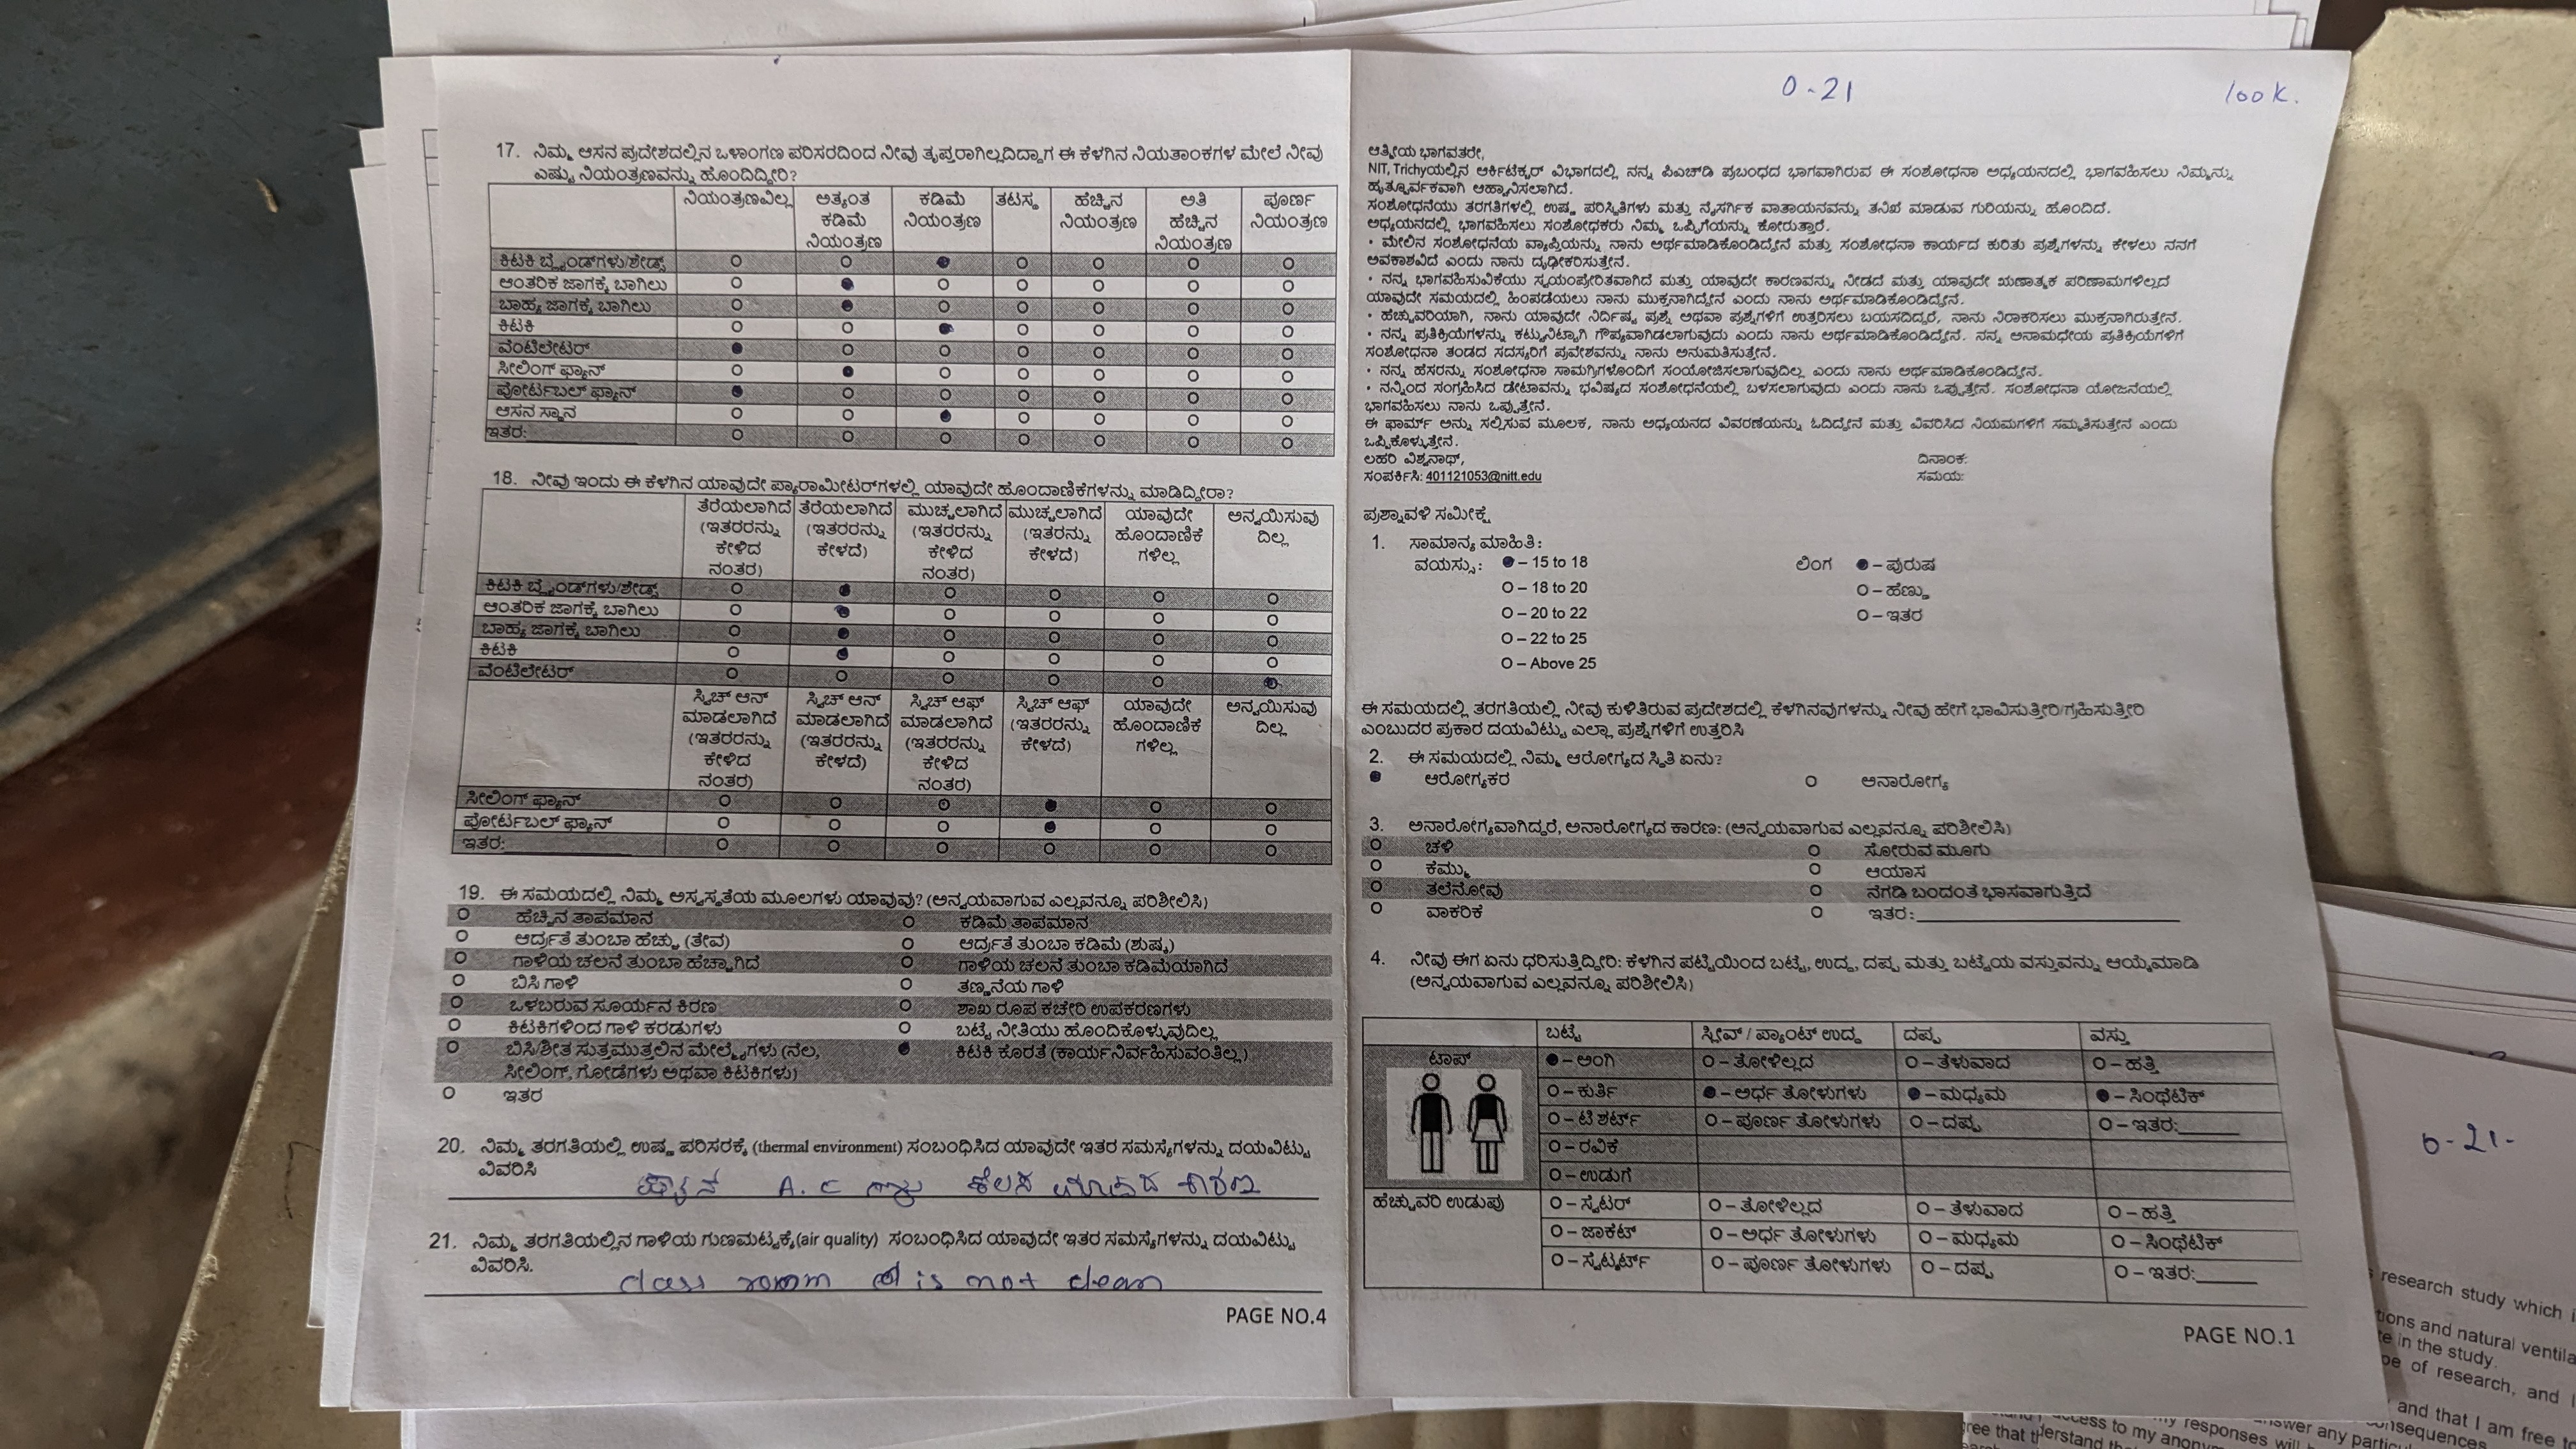 17. ನಿಮ್ಮ ಆಸನ ಪ್ರದೇಶದಲ್ಲಿನ ಒಳಾಂಗಣ ಪರಿಸರದಿಂದ ನೀವು ತೃಪ್ತರಾಗಿಲ್ಲದಿದ್ದಾಗ ಈ ಕೆಳಗಿನ ನಿಯತಾಂಕಗಳ ಮೇಲೆ ನೀವು
ಎಷ್ಟು ನಿಯಂತ್ರಣವನ್ನು ಹೊಂದಿದ್ದೀರಿ?
ನಿಯಂತ್ರಣವಿಲ್ಲ ಅತ್ಯಂತ ಕಡಿಮೆ ನಿಯಂತ್ರಣ ಕಡಿಮೆ ನಿಯಂತ್ರಣ ತಟಸ್ಥ ಹೆಚ್ಚಿನ ನಿಯಂತ್ರಣ ಅತಿ ಹೆಚ್ಚಿನ ನಿಯಂತ್ರಣ ಪೂರ್ಣ ನಿಯಂತ್ರಣ
ಕಿಟಕಿ ಬ್ಲೈಂಡ್‌ಗಳು/ಶೇಡ್ಸ್
ಆಂತರಿಕ ಜಾಗಕ್ಕೆ ಬಾಗಿಲು
ಬಾಹ್ಯ ಜಾಗಕ್ಕೆ ಬಾಗಿಲು
ಕಿಟಕಿ
ವೆಂಟಿಲೇಟರ್
ಸೀಲಿಂಗ್ ಫ್ಯಾನ್
ಪೋರ್ಟಬಲ್ ಫ್ಯಾನ್
ಆಸನ ಸ್ಥಾನ
ಇತರ:
18. ನೀವು ಇಂದು ಈ ಕೆಳಗಿನ ಯಾವುದೇ ಪ್ಯಾರಾಮೀಟರ್‌ಗಳಲ್ಲಿ ಯಾವುದೇ ಹೊಂದಾಣಿಕೆಗಳನ್ನು ಮಾಡಿದ್ದೀರಾ?
ತೆರೆಯಲಾಗಿದೆ (ಇತರರನ್ನು ಕೇಳಿದ ನಂತರ) ತೆರೆಯಲಾಗಿದೆ (ಇತರರನ್ನು ಕೇಳದೆ) ಮುಚ್ಚಲಾಗಿದೆ (ಇತರರನ್ನು ಕೇಳಿದ ನಂತರ) ಮುಚ್ಚಲಾಗಿದೆ (ಇತರರನ್ನು ಕೇಳದೆ) ಯಾವುದೇ ಹೊಂದಾಣಿಕೆಗಳಿಲ್ಲ ಅನ್ವಯಿಸುವುದಿಲ್ಲ
ಕಿಟಕಿ ಬ್ಲೈಂಡ್‌ಗಳು/ಶೇಡ್ಸ್
ಆಂತರಿಕ ಜಾಗಕ್ಕೆ ಬಾಗಿಲು
ಬಾಹ್ಯ ಜಾಗಕ್ಕೆ ಬಾಗಿಲು
ಕಿಟಕಿ
ವೆಂಟಿಲೇಟರ್
ಸ್ವಿಚ್ ಆನ್ ಮಾಡಲಾಗಿದೆ (ಇತರರನ್ನು ಕೇಳಿದ ನಂತರ) ಸ್ವಿಚ್ ಆನ್ ಮಾಡಲಾಗಿದೆ (ಇತರರನ್ನು ಕೇಳದೆ) ಸ್ವಿಚ್ ಆಫ್ ಮಾಡಲಾಗಿದೆ (ಇತರರನ್ನು ಕೇಳಿದ ನಂತರ) ಸ್ವಿಚ್ ಆಫ್ (ಇತರರನ್ನು ಕೇಳದೆ) ಯಾವುದೇ ಹೊಂದಾಣಿಕೆಗಳಿಲ್ಲ ಅನ್ವಯಿಸುವುದಿಲ್ಲ
ಸೀಲಿಂಗ್ ಫ್ಯಾನ್
ಪೋರ್ಟಬಲ್ ಫ್ಯಾನ್
ಇತರ:
19. ಈ ಸಮಯದಲ್ಲಿ ನಿಮ್ಮ ಅಸ್ವಸ್ಥತೆಯ ಮೂಲಗಳು ಯಾವುವು? (ಅನ್ವಯವಾಗುವ ಎಲ್ಲವನ್ನೂ ಪರಿಶೀಲಿಸಿ)
ಹೆಚ್ಚಿನ ತಾಪಮಾನ ಕಡಿಮೆ ತಾಪಮಾನ
ಆರ್ದ್ರತೆ ತುಂಬಾ ಹೆಚ್ಚು (ತೇವ) ಆರ್ದ್ರತೆ ತುಂಬಾ ಕಡಿಮೆ (ಶುಷ್ಕ)
ಗಾಳಿಯ ಚಲನೆ ತುಂಬಾ ಹೆಚ್ಚಾಗಿದೆ ಗಾಳಿಯ ಚಲನೆ ತುಂಬಾ ಕಡಿಮೆಯಾಗಿದೆ
ಬಿಸಿ ಗಾಳಿ ತಣ್ಣನೆಯ ಗಾಳಿ
ಒಳಬರುವ ಸೂರ್ಯನ ಕಿರಣ ಶಾಖ ರೂಪ ಕಚೇರಿ ಉಪಕರಣಗಳು
ಕಿಟಕಿಗಳಿಂದ ಗಾಳಿ ಕರಡುಗಳು ಬಟ್ಟೆ ನೀತಿಯು ಹೊಂದಿಕೊಳ್ಳುವುದಿಲ್ಲ
ಬಿಸಿ/ಶೀತ ಸುತ್ತಮುತ್ತಲಿನ ಮೇಲ್ಮೈಗಳು (ನೆಲ, ಕಿಟಕಿ ಕೊರತೆ (ಕಾರ್ಯನಿರ್ವಹಿಸುವಂತಿಲ್ಲ)
ಸೀಲಿಂಗ್, ಗೋಡೆಗಳು ಅಥವಾ ಕಿಟಕಿಗಳು)
ಇತರ
20. ನಿಮ್ಮ ತರಗತಿಯಲ್ಲಿ ಉಷ್ಣ ಪರಿಸರಕ್ಕೆ (thermal environment) ಸಂಬಂಧಿಸಿದ ಯಾವುದೇ ಇತರ ಸಮಸ್ಯೆಗಳನ್ನು ದಯವಿಟ್ಟು
ವಿವರಿಸಿ
A. C ಕೆಲಸ
21. ನಿಮ್ಮ ತರಗತಿಯಲ್ಲಿನ ಗಾಳಿಯ ಗುಣಮಟ್ಟಕ್ಕೆ(air quality) ಸಂಬಂಧಿಸಿದ ಯಾವುದೇ ಇತರ ಸಮಸ್ಯೆಗಳನ್ನು ದಯವಿಟ್ಟು
ವಿವರಿಸಿ.
class room is not clean
PAGE NO.4
0-21
100K.
ಆತ್ಮೀಯ ಭಾಗವತರೇ,
NIT, Trichyಯಲ್ಲಿನ ಆರ್ಕಿಟೆಕ್ಚರ್ ವಿಭಾಗದಲ್ಲಿ ನನ್ನ ಪಿಎಚ್‌ಡಿ ಪ್ರಬಂಧದ ಭಾಗವಾಗಿರುವ ಈ ಸಂಶೋಧನಾ ಅಧ್ಯಯನದಲ್ಲಿ ಭಾಗವಹಿಸಲು ನಿಮ್ಮನ್ನು
ಹೃತ್ಪೂರ್ವಕವಾಗಿ ಆಹ್ವಾನಿಸಲಾಗಿದೆ.
ಸಂಶೋಧನೆಯು ತರಗತಿಗಳಲ್ಲಿ ಉಷ್ಣ ಪರಿಸ್ಥಿತಿಗಳು ಮತ್ತು ನೈಸರ್ಗಿಕ ವಾತಾಯನವನ್ನು ತನಿಖೆ ಮಾಡುವ ಗುರಿಯನ್ನು ಹೊಂದಿದೆ.
ಅಧ್ಯಯನದಲ್ಲಿ ಭಾಗವಹಿಸಲು ಸಂಶೋಧಕರು ನಿಮ್ಮ ಒಪ್ಪಿಗೆಯನ್ನು ಕೋರುತ್ತಾರೆ.
• ಮೇಲಿನ ಸಂಶೋಧನೆಯ ವ್ಯಾಪ್ತಿಯನ್ನು ನಾನು ಅರ್ಥಮಾಡಿಕೊಂಡಿದ್ದೇನೆ ಮತ್ತು ಸಂಶೋಧನಾ ಕಾರ್ಯದ ಕುರಿತು ಪ್ರಶ್ನೆಗಳನ್ನು ಕೇಳಲು ನನಗೆ
ಅವಕಾಶವಿದೆ ಎಂದು ನಾನು ದೃಢೀಕರಿಸುತ್ತೇನೆ.
• ನನ್ನ ಭಾಗವಹಿಸುವಿಕೆಯು ಸ್ವಯಂಪ್ರೇರಿತವಾಗಿದೆ ಮತ್ತು ಯಾವುದೇ ಕಾರಣವನ್ನು ನೀಡದೆ ಮತ್ತು ಯಾವುದೇ ಋಣಾತ್ಮಕ ಪರಿಣಾಮಗಳಿಲ್ಲದೆ
ಯಾವುದೇ ಸಮಯದಲ್ಲಿ ಹಿಂಪಡೆಯಲು ನಾನು ಮುಕ್ತನಾಗಿದ್ದೇನೆ ಎಂದು ನಾನು ಅರ್ಥಮಾಡಿಕೊಂಡಿದ್ದೇನೆ.
• ಹೆಚ್ಚುವರಿಯಾಗಿ, ನಾನು ಯಾವುದೇ ನಿರ್ದಿಷ್ಟ ಪ್ರಶ್ನೆ ಅಥವಾ ಪ್ರಶ್ನೆಗಳಿಗೆ ಉತ್ತರಿಸಲು ಬಯಸದಿದ್ದರೆ, ನಾನು ನಿರಾಕರಿಸಲು ಮುಕ್ತನಾಗಿರುತ್ತೇನೆ.
• ನನ್ನ ಪ್ರತಿಕ್ರಿಯೆಗಳನ್ನು ಕಟ್ಟುನಿಟ್ಟಾಗಿ ಗೌಪ್ಯವಾಗಿಡಲಾಗುವುದು ಎಂದು ನಾನು ಅರ್ಥಮಾಡಿಕೊಂಡಿದ್ದೇನೆ. ನನ್ನ ಅನಾಮಧೇಯ ಪ್ರತಿಕ್ರಿಯೆಗಳಿಗೆ
ಸಂಶೋಧನಾ ತಂಡದ ಸದಸ್ಯರಿಗೆ ಪ್ರವೇಶವನ್ನು ನಾನು ಅನುಮತಿಸುತ್ತೇನೆ.
• ನನ್ನ ಹೆಸರನ್ನು ಸಂಶೋಧನಾ ಸಾಮಗ್ರಿಗಳೊಂದಿಗೆ ಸಂಯೋಜಿಸಲಾಗುವುದಿಲ್ಲ ಎಂದು ನಾನು ಅರ್ಥಮಾಡಿಕೊಂಡಿದ್ದೇನೆ.
• ನನ್ನಿಂದ ಸಂಗ್ರಹಿಸಿದ ಡೇಟಾವನ್ನು ಭವಿಷ್ಯದ ಸಂಶೋಧನೆಯಲ್ಲಿ ಬಳಸಲಾಗುವುದು ಎಂದು ನಾನು ಒಪ್ಪುತ್ತೇನೆ. ಸಂಶೋಧನಾ ಯೋಜನೆಯಲ್ಲಿ
ಭಾಗವಹಿಸಲು ನಾನು ಒಪ್ಪುತ್ತೇನೆ.
ಈ ಫಾರ್ಮ್ ಅನ್ನು ಸಲ್ಲಿಸುವ ಮೂಲಕ, ನಾನು ಅಧ್ಯಯನದ ವಿವರಣೆಯನ್ನು ಓದಿದ್ದೇನೆ ಮತ್ತು ವಿವರಿಸಿದ ನಿಯಮಗಳಿಗೆ ಸಮ್ಮತಿಸುತ್ತೇನೆ ಎಂದು
ಒಪ್ಪಿಕೊಳ್ಳುತ್ತೇನೆ.
ಲಹರಿ ವಿಶ್ವನಾಥ್, ದಿನಾಂಕ:
ಸಂಪರ್ಕಿಸಿ: 401121053@nitt.edu ಸಮಯ:
ಪ್ರಶ್ನಾವಳಿ ಸಮೀಕ್ಷೆ
1. ಸಾಮಾನ್ಯ ಮಾಹಿತಿ:
ವಯಸ್ಸು: – 15 to 18 ಲಿಂಗ – ಪುರುಷ
O – 18 to 20 O – ಹೆಣ್ಣು
O – 20 to 22 O – ಇತರ
O – 22 to 25
O – Above 25
ಈ ಸಮಯದಲ್ಲಿ ತರಗತಿಯಲ್ಲಿ ನೀವು ಕುಳಿತಿರುವ ಪ್ರದೇಶದಲ್ಲಿ ಕೆಳಗಿನವುಗಳನ್ನು ನೀವು ಹೇಗೆ ಭಾವಿಸುತ್ತೀರಿ/ಗ್ರಹಿಸುತ್ತೀರಿ
ಎಂಬುದರ ಪ್ರಕಾರ ದಯವಿಟ್ಟು ಎಲ್ಲಾ ಪ್ರಶ್ನೆಗಳಿಗೆ ಉತ್ತರಿಸಿ
2. ಈ ಸಮಯದಲ್ಲಿ ನಿಮ್ಮ ಆರೋಗ್ಯದ ಸ್ಥಿತಿ ಏನು?
ಆರೋಗ್ಯಕರ O ಅನಾರೋಗ್ಯ
3. ಅನಾರೋಗ್ಯವಾಗಿದ್ದರೆ, ಅನಾರೋಗ್ಯದ ಕಾರಣ: (ಅನ್ವಯವಾಗುವ ಎಲ್ಲವನ್ನೂ ಪರಿಶೀಲಿಸಿ)
ಚಳಿ ಸೋರುವ ಮೂಗು
ಕೆಮ್ಮು ಆಯಾಸ
ತಲೆನೋವು ನೆಗಡಿ ಬಂದಂತೆ ಭಾಸವಾಗುತ್ತಿದೆ
ವಾಕರಿಕೆ ಇತರ:
4. ನೀವು ಈಗ ಏನು ಧರಿಸುತ್ತಿದ್ದೀರಿ: ಕೆಳಗಿನ ಪಟ್ಟಿಯಿಂದ ಬಟ್ಟೆ, ಉದ್ದ, ದಪ್ಪ ಮತ್ತು ಬಟ್ಟೆಯ ವಸ್ತುವನ್ನು ಆಯ್ಕೆಮಾಡಿ
(ಅನ್ವಯವಾಗುವ ಎಲ್ಲವನ್ನೂ ಪರಿಶೀಲಿಸಿ)
ಬಟ್ಟೆ ಸ್ಲೀವ್ / ಪ್ಯಾಂಟ್ ಉದ್ದ ದಪ್ಪ ವಸ್ತು
ಟಾಪ್ – ಅಂಗಿ O – ತೋಳಿಲ್ಲದ O – ತೆಳುವಾದ O – ಹತ್ತಿ
O – ಕುರ್ತಿ – ಅರ್ಧ ತೋಳುಗಳು – ಮಧ್ಯಮ – ಸಿಂಥೆಟಿಕ್
O – ಟಿ ಶರ್ಟ್ O – ಪೂರ್ಣ ತೋಳುಗಳು O – ದಪ್ಪ O – ಇತರ:
O – ರವಿಕೆ
O – ಉಡುಗೆ
ಹೆಚ್ಚುವರಿ ಉಡುಪು O – ಸ್ವೆಟರ್ O – ತೋಳಿಲ್ಲದ O – ತೆಳುವಾದ O – ಹತ್ತಿ
O – ಜಾಕೆಟ್ O – ಅರ್ಧ ತೋಳುಗಳು O – ಮಧ್ಯಮ O – ಸಿಂಥೆಟಿಕ್
O – ಸ್ವೆಟ್ಶರ್ಟ್ O – ಪೂರ್ಣ ತೋಳುಗಳು O – ದಪ್ಪ O – ಇತರ:
PAGE NO.1
0-21-
research study which
tions and natural ventila
in the study.
of research, and
and that I am free
answer any particu
consequences
my responses will
access to my anony